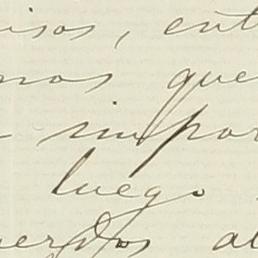 isos, ent
mos que
impor
luego
uerdos al